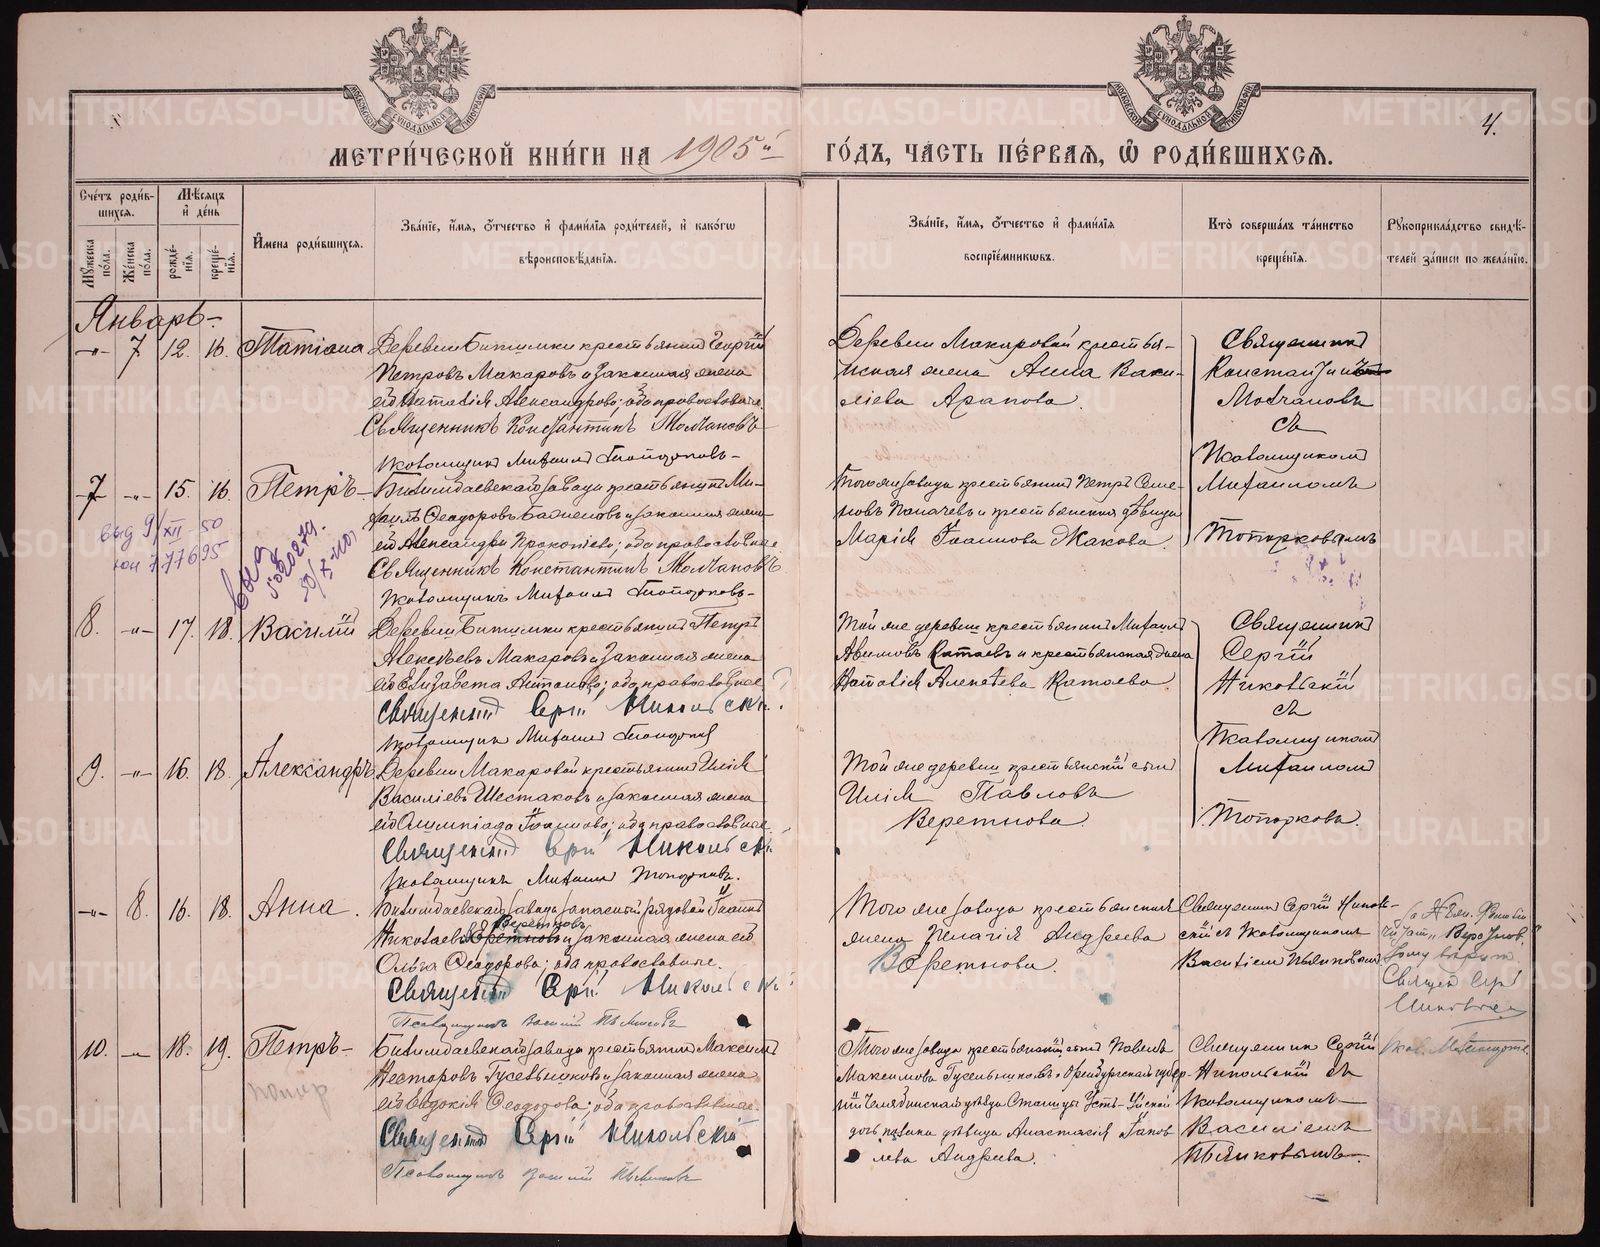 МОСКОВСКОЙ СѴНОДАЛЬНОЙ ТИПОГРАФІИ
МОСКОВСКОЙ СѴНОДАЛЬНОЙ ТИПОГРАФІИ
4.
МЕТРИ́ЧЕСКОЙ КНИ́ГИ НА 1905й ГО́ДЪ, ЧА́СТЬ ПЕ́РВАЯ, Ѽ РОДИ́ВШИХСЯ.
Сче́тъ роди́в-
шихся.
Мѣ́сяцъ
и҆ де́нь
Мꙋжеска по́ла.
Же́нска по́ла.
рожде́-
нїя.
креще́-
нїя.
И҆мена роди́вшихся.
Зва́нїе, и҆́мя, ѻ҆́тчество и҆ фами́лїя роди́телей, и҆ како́гѡ
вѣроисповѣ́данїя.
Зва́нїе, и҆́мя, ѻ҆́тчество и҆ фами́лїя
воспрїе́мникѡвъ.
Кто̀ соверша́лъ та́инство
креще́нїя.
Рꙋкоприкла́дство свидѣ́-
телей за́писи по жела́нїю.
Январь
-„- 7 12. 16. Татіана
Деревни Битимки крестьянинъ Георгій
Петровъ Макаровъ и законная жена
его Наталія Александрова; оба православные.
Священникъ Константинъ Молчановъ
Псаломщикъ Михаилъ Топорковъ
Деревни Макаровой крестья-
нская жена Анна Васи-
ліева Арапова.
Священникъ
Константинъ
Молчановъ
съ
Псаломщикомъ
Михаиломъ
Топорковымъ
7 -„- 15. 16. Петръ
Билимбаевскаго завода крестьянинъ Ми-
хаилъ Ѳеодоровъ и законная жена
его Александра Прокопіева; оба православные
Священникъ Константинъ Молчановъ
Псаломщикъ Михаилъ Топорковъ
Того же завода крестьянинъ Петръ Семе-
новъ и крестьянская дѣвица
Марія Іоаннова Жакова.
выд 9/XII-50
777695
8. -„- 17. 18. Василій
Деревни Битимки крестьянинъ Петръ
Алексѣевъ Макаровъ и законная жена
его Елизавета Антонова; оба православные
Священникъ Сергій Никольскій
Псаломщикъ Михаилъ Топорковъ
Той же деревни крестьянинъ Михаилъ
Катаевъ и крестьянская жена
Наталія Алексѣева Катаева
Священникъ
Сергій
Никольскій
съ
Псаломщикомъ
Михаиломъ
Топорковъ.
9. -„- 16. 18. Александръ
Деревни Макаровой крестьянинъ Илія
Василіевъ Шестаковъ и законная жена
его Олимпіада Іоаннова; оба православные.
Священникъ Сергій Никольскій
Псаломщикъ Михаилъ Топорковъ.
Той же деревни крестьянскій сынъ
Илія Павловъ
Веретнова.
-„- 8. 16. 18. Анна.
Билимбаевскаго завода запасный рядовой Іоаннъ
Веретновъ
Николаевъ и законная жена его
Ольга Ѳеодорова; оба православные.
Священникъ Сергій Никольскій
Псаломщикъ Василій
Того же завода крестьянская
жена Пелагія Андреева
Веретнова.
Священникъ Сергій Николь-
скій съ Псаломщикомъ
Василіемъ Пьянковымъ
10. -„- 18. 19. Петръ
Билимбаевскаго завода крестьянинъ Максимъ
Несторовъ Гусельниковъ и законная жена
его Евдокія Ѳеодорова; оба православные.
Священникъ Сергій Никольскій
Псаломщикъ Василій Пьянковъ
Того же завода крестьянскій сынъ Павелъ
Максимовъ Гусельниковъ и Оренбургской губер-
ніи Челябинскаго уѣзда Станицы Усть-Уйской
дочь казака дѣвица Анастасія Іаков-
лева Андреева.
Священникъ Сергій
Никольскій съ
Псаломщикомъ
Василіемъ
Пьянковымъ
METRIKI.GASO-URAL.RU